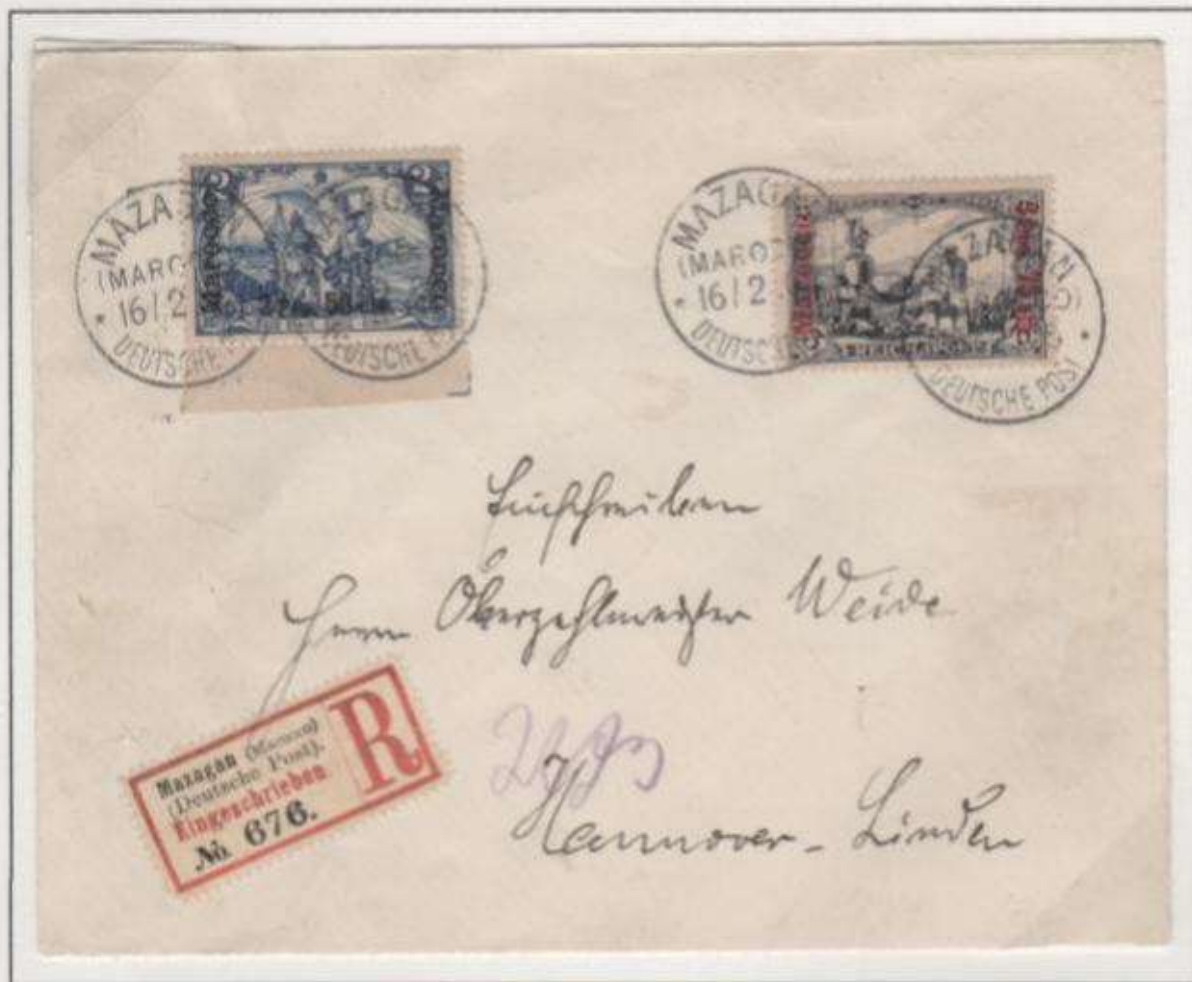 MAZAGAN
(MAROCCO)
16/2
DEUTSCHE POST
Marocco
Marocco
2 Pes. 50 Cts.
MAZAGAN
(MAROCCO)
16/2
DEUTSCHE POST
Marocco
MAZAGAN
DEUTSCHE POST
Einschreiben
Herrn Oberzahlmeister Weide
Hannover-Linden
Mazagan (Marocco)
(Deutsche Post).
Eingeschrieben
№ 676.
R